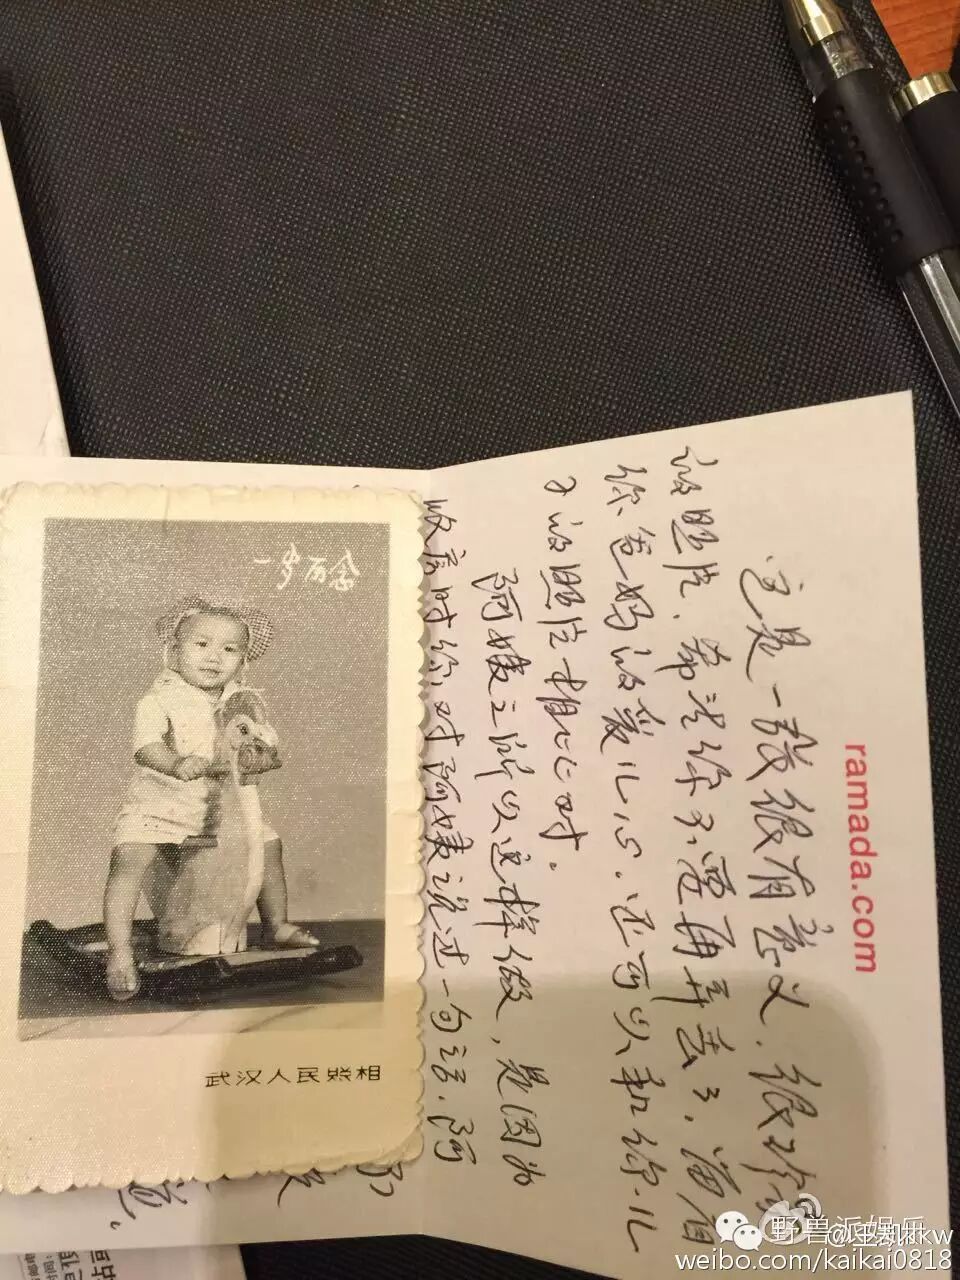 ramada.com
这是一张很有意义.很珍贵
的照片.希望你不要再弄丢了.留有
你爸妈的爱儿心.还可以和你儿
子的照片相比对.
阿姨之所以这样做,是因为
收房时你对阿姨说过一句话.阿
一岁百念
武汉人民照相
道.
野兽派娱乐
@王凯kkw
weibo.com/kaikai0818